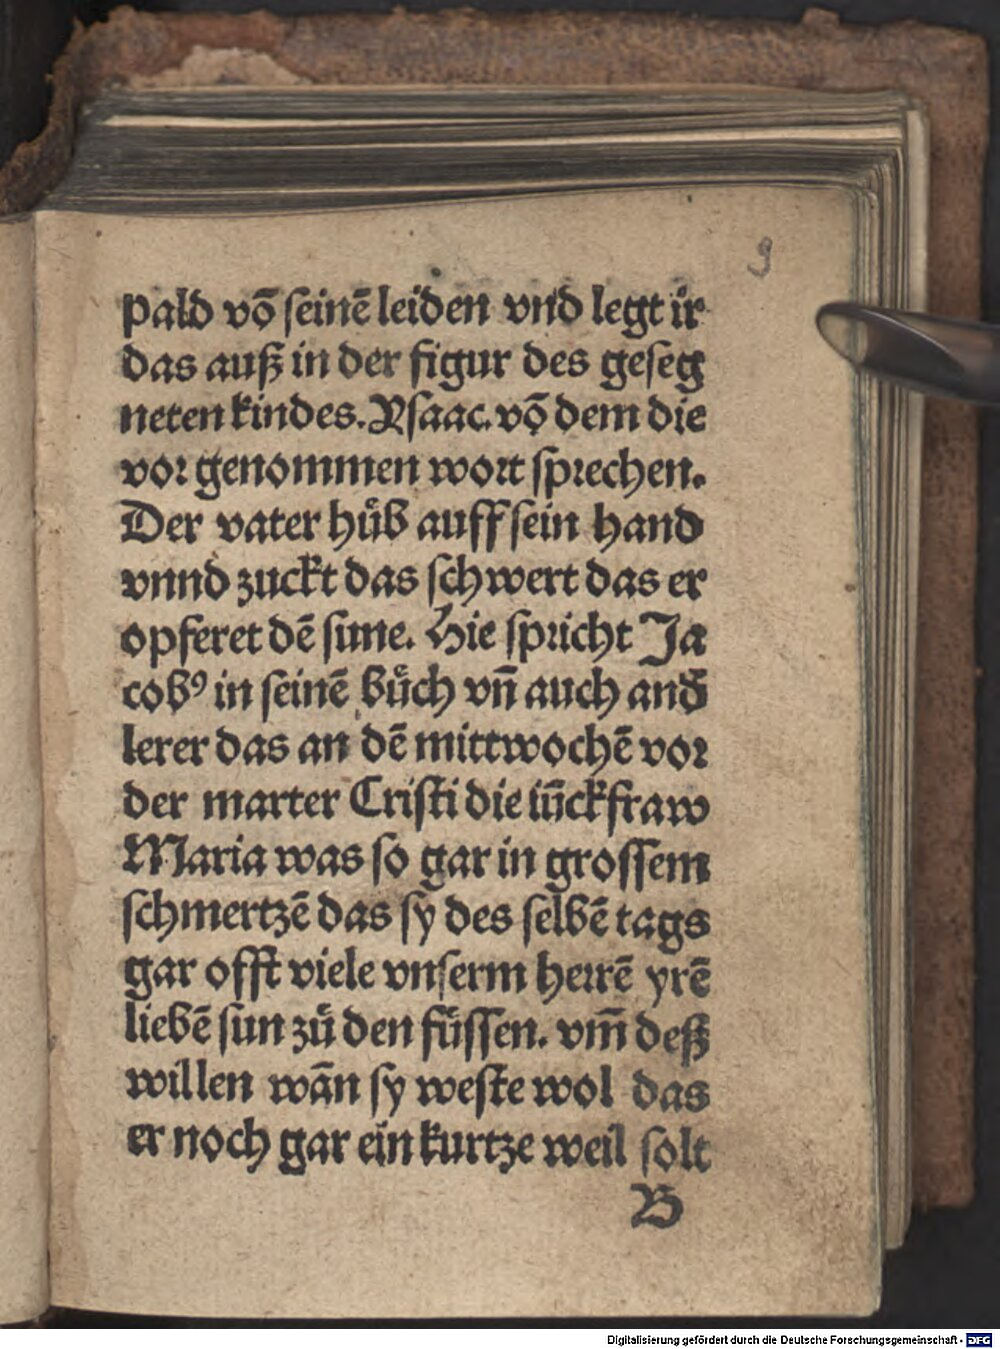 9
pald vō seinē leiden vnd legt ir
das auß in der figur des geseg
neten kindes. Ysaac. vō dem die
vor genommen wort sprechen.
Der vater hůb auff sein hand
vnnd zuckt das schwert das er
opferet dē sune. Hie spricht Ja
cobꝰ in seinē bůch vn̄ auch and̄
lerer das an dē mittwochē vor
der marter Cristi die iūckfraw
Maria was so gar in grossem
schmertzē das sy des selbē tags
gar offt viele vnserm herrē yrē
liebē sun zů den fůssen. vm̄ deß
willen wān sy weste wol das
er noch gar ein kurtze weil solt
B
Digitalisierung gefördert durch die Deutsche Forschungsgemeinschaft - DFG